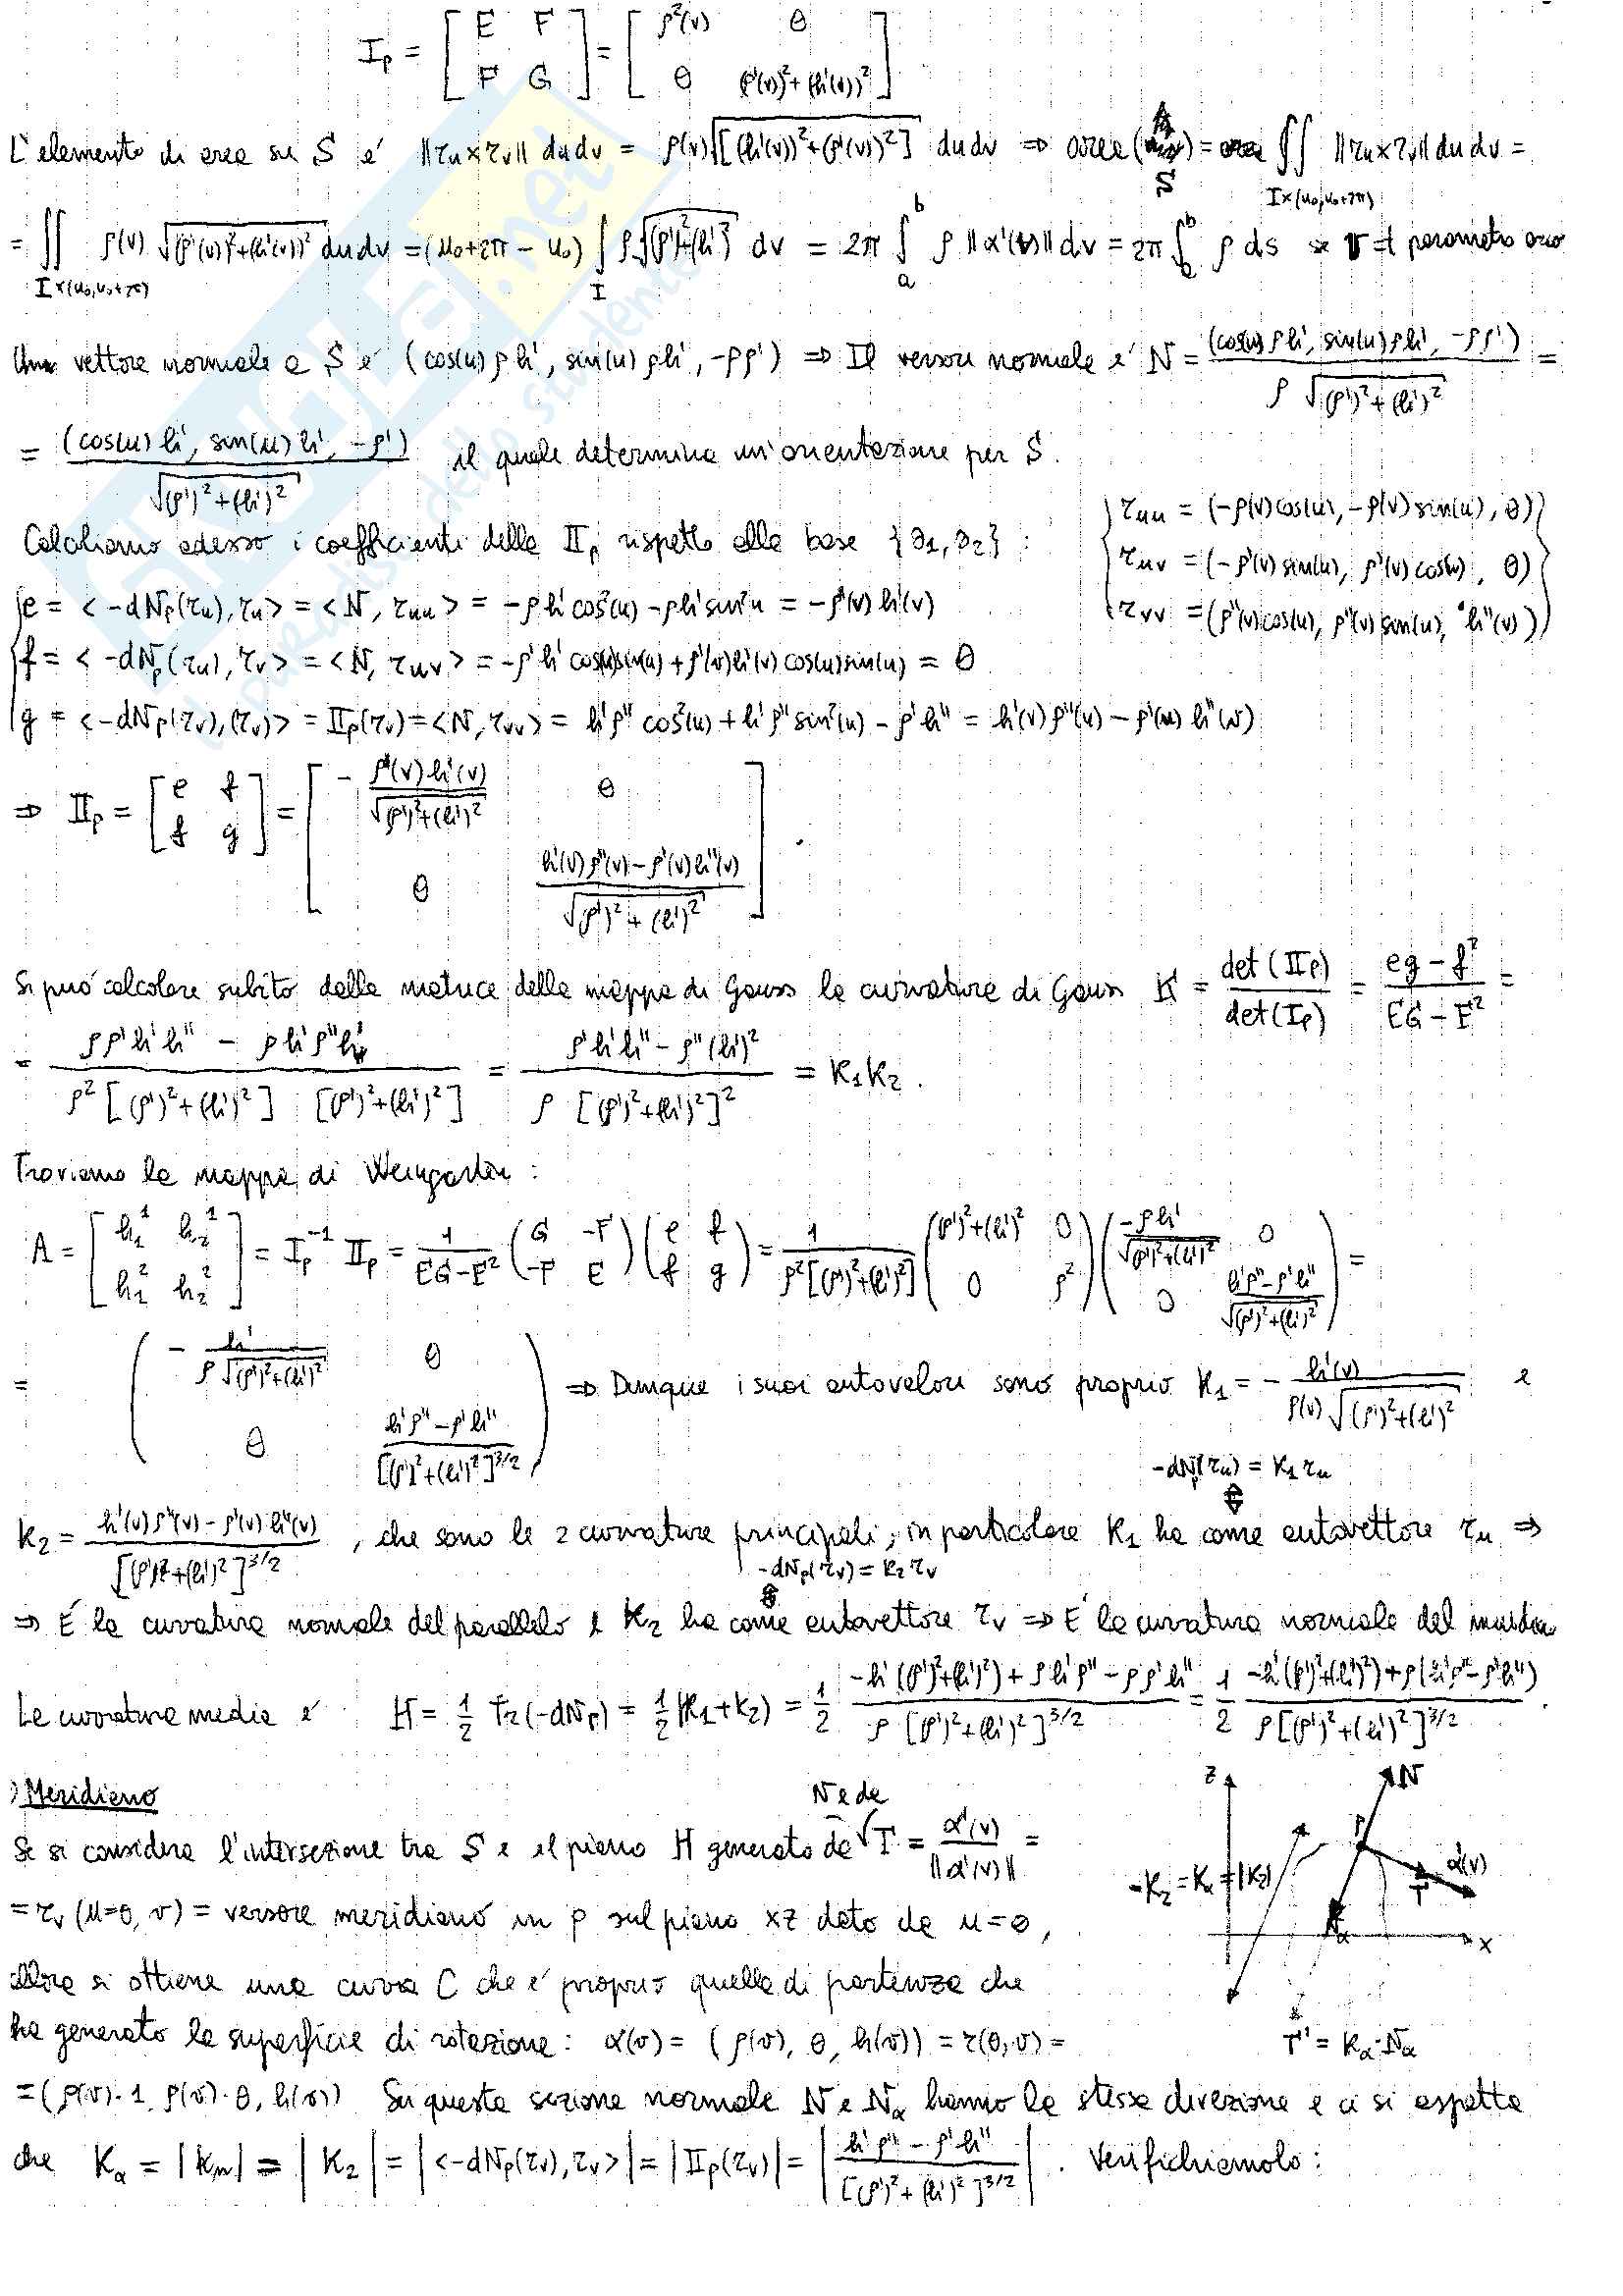 I_p = [E F; F G] = [ρ²(v) 0; 0 (ρ'(v))²+(h'(v))²]
L'elemento di area su S è ||r_u×r_v|| du dv = ρ(v)√[(h'(v))²+(ρ'(v))²] du dv ⇒ area(S) = ∬_{I×(u₀,u₀+2π)} ||r_u×r_v|| du dv =
= ∬_{I×(u₀,u₀+2π)} ρ(v) √(ρ'(v))²+(h'(v))² du dv = (u₀+2π - u₀) ∫_I ρ√(ρ')²+(h')² dv = 2π ∫_a^b ρ ||α'(v)|| dv = 2π ∫_a^b ρ ds se v = parametro arco
Un vettore normale a S è (cos(u) ρh', sin(u) ρh', -ρρ') ⇒ Il versore normale è N = (cos(u) ρh', sin(u) ρh', -ρρ') / ρ√(ρ')²+(h')² =
= (cos(u) h', sin(u) h', -ρ') / √(ρ')²+(h')² il quale determina un'orientazione per S.
Calcoliamo adesso i coefficienti della II_p rispetto alla base {∂₁, ∂₂} :
r_uu = (-ρ(v)cos(u), -ρ(v)sin(u), 0)
r_uv = (-ρ'(v)sin(u), ρ'(v)cos(u), 0)
r_vv = (ρ''(v)cos(u), ρ''(v)sin(u), h''(v))
e = <-dN_p(r_u), r_u> = <N, r_uu> = -ρh'cos²(u) - ρh'sin²u = -ρ(v)h'(v)
f = <-dN_p(r_u), r_v> = <N, r_uv> = -ρ'h' cos(u)sin(u) + ρ'(v)h'(v)cos(u)sin(u) = 0
g = <-dN_p(r_v), (r_v)> = II_p(r_v) = <N, r_vv> = h'ρ'' cos²(u) + h'ρ''sin²(u) - ρ'h'' = h'(v)ρ''(v) - ρ'(v)h''(v)
⇒ II_p = [e f; f g] = [-ρ(v)h'(v)/√(ρ')²+(h')² 0; 0 (h'(v)ρ''(v)-ρ'(v)h''(v))/√(ρ')²+(h')²].
Si può calcolare subito dalla matrice della mappa di Gauss la curvatura di Gauss K = det(II_p)/det(I_p) = (eg-f²)/(EG-F²) =
= (ρρ'h'h'' - ρh'ρ''h') / ρ²[(ρ')²+(h')²] [(ρ')²+(h')²] = (ρ'h'h'' - ρ''(h')²) / ρ[(ρ')²+(h')²]² = K₁K₂.
Troviamo la mappa di Weingarten :
A = [h₁¹ h₂¹; h₁² h₂²] = I_p⁻¹ II_p = 1/(EG-F²) (G -F; -F E)(e f; f g) = 1/ρ²[(ρ')²+(h')²] ((ρ')²+(h')² 0; 0 ρ²)(-ρh'/√(ρ')²+(h')² 0; 0 (h'ρ''-ρ'h'')/√(ρ')²+(h')²) =
= (-h'/ρ√(ρ')²+(h')² 0; 0 (h'ρ''-ρ'h'')/[(ρ')²+(h')²]^{3/2}) ⇒ Dunque i suoi autovalori sono proprio K₁ = -h'(v)/ρ(v)√(ρ')²+(h')² e
-dN_p(r_u) = K₁ r_u
⇕
K₂ = (h'(v)ρ''(v) - ρ'(v)h''(v))/[(ρ')²+(h')²]^{3/2} , che sono le 2 curvature principali, in particolare K₁ ha come autovettore r_u ⇒
-dN_p(r_v) = K₂ r_v
⇕
⇒ È la curvatura normale del parallelo e K₂ ha come autovettore r_v ⇒ È la curvatura normale del
La curvatura media è H = 1/2 Tr(-dN_p) = 1/2 (K₁+K₂) = 1/2 (-h'((ρ')²+(h')²) + ρh'ρ'' - ρρ'h'')/ρ[(ρ')²+(h')²]^{3/2} = 1/2 (-h'((ρ')²+(h')²)+ρ(h'ρ''-ρ'h''))/ρ[(ρ')²+(h')²]^{3/2}.
) Meridiano
N e da
Se si considera l'intersezione tra S e il piano H generato da √ T = α'(v)/||α'(v)|| =
= r_v(u=0, v) = versore meridiano in p sul piano xz dato da u=0,
allora si ottiene una curva C che è proprio quella di partenza che
ha generato la superficie di rotazione: α(v) = (ρ(v), 0, h(v)) = r(0,v) =
= (ρ(v)·1, ρ(v)·0, h(v)) Su questa sezione normale N e N_α hanno la stessa direzione e ci si aspetta
che K_α = |K_n| = |K₂| = |<-dN_p(r_v), r_v>| = |II_p(r_v)| = |(h'ρ''-ρ'h'')/[(ρ')²+(h')²]^{3/2}|. Verifichiamolo :
z
N
p
α'(v)
T
-K₂ = K_α = |K₂|
N_α
x
T' = K_α·N_α